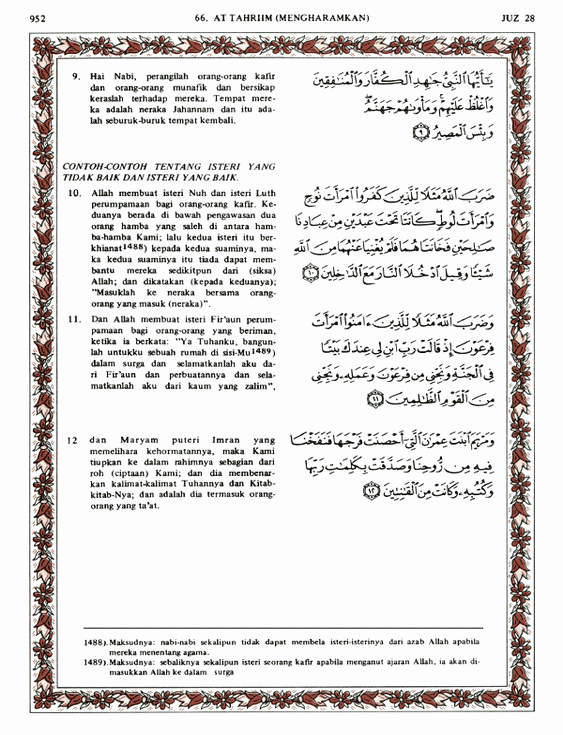 952
66. AT TAHRIIM (MENGHARAMKAN)
JUZ 28
9. Hai Nabi, perangilah orang-orang kafir
dan orang-orang munafik dan bersikap
keraslah terhadap mereka. Tempat mere-
ka adalah neraka Jahannam dan itu ada-
lah seburuk-buruk tempat kembali.
يَٰٓأَيُّهَا ٱلنَّبِىُّ جَٰهِدِ ٱلْكُفَّارَ وَٱلْمُنَٰفِقِينَ
وَٱغْلُظْ عَلَيْهِمْ وَمَأْوَىٰهُمْ جَهَنَّمُ
وَبِئْسَ ٱلْمَصِيرُ ٩
CONTOH-CONTOH TENTANG ISTERI YANG
TIDAK BAIK DAN ISTERI YANG BAIK.
10. Allah membuat isteri Nuh dan isteri Luth
perumpamaan bagi orang-orang kafir. Ke-
duanya berada di bawah pengawasan dua
orang hamba yang saleh di antara ham-
ba-hamba Kami; lalu kedua isteri itu ber-
khianat1488) kepada kedua suaminya, ma-
ka kedua suaminya itu tiada dapat mem-
bantu mereka sedikitpun dari (siksa)
Allah; dan dikatakan (kepada keduanya);
"Masuklah ke neraka bersama orang-
orang yang masuk (neraka)".
ضَرَبَ ٱللَّهُ مَثَلًا لِّلَّذِينَ كَفَرُوا۟ ٱمْرَأَتَ نُوحٍ
وَٱمْرَأَتَ لُوطٍ كَانَتَا تَحْتَ عَبْدَيْنِ مِنْ عِبَادِنَا
صَٰلِحَيْنِ فَخَانَتَاهُمَا فَلَمْ يُغْنِيَا عَنْهُمَا مِنَ ٱللَّهِ
شَيْـًٔا وَقِيلَ ٱدْخُلَا ٱلنَّارَ مَعَ ٱلدَّٰخِلِينَ ١٠
11. Dan Allah membuat isteri Fir'aun perum-
pamaan bagi orang-orang yang beriman,
ketika ia berkata: "Ya Tuhanku, bangun-
lah untukku sebuah rumah di sisi-Mu1489)
dalam surga dan selamatkanlah aku da-
ri Fir'aun dan perbuatannya dan sela-
matkanlah aku dari kaum yang zalim",
وَضَرَبَ ٱللَّهُ مَثَلًا لِّلَّذِينَ ءَامَنُوا۟ ٱمْرَأَتَ
فِرْعَوْنَ إِذْ قَالَتْ رَبِّ ٱبْنِ لِى عِندَكَ بَيْتًا
فِى ٱلْجَنَّةِ وَنَجِّنِى مِن فِرْعَوْنَ وَعَمَلِهِۦ وَنَجِّنِى
مِنَ ٱلْقَوْمِ ٱلظَّٰلِمِينَ ١١
12 dan Maryam puteri Imran yang
memelihara kehormatannya, maka Kami
tiupkan ke dalam rahimnya sebagian dari
roh (ciptaan) Kami; dan dia membenar-
kan kalimat-kalimat Tuhannya dan Kitab-
kitab-Nya; dan adalah dia termasuk orang-
orang yang ta'at.
وَمَرْيَمَ ٱبْنَتَ عِمْرَٰنَ ٱلَّتِىٓ أَحْصَنَتْ فَرْجَهَا فَنَفَخْنَا
فِيهِ مِن رُّوحِنَا وَصَدَّقَتْ بِكَلِمَٰتِ رَبِّهَا
وَكُتُبِهِۦ وَكَانَتْ مِنَ ٱلْقَٰنِتِينَ ١٢
1488). Maksudnya: nabi-nabi sekalipun tidak dapat membela isteri-isterinya dari azab Allah apabila
mereka menentang agama.
1489). Maksudnya: sebaliknya sekalipun isteri seorang kafir apabila menganut ajaran Allah, ia akan di-
masukkan Allah ke dalam surga